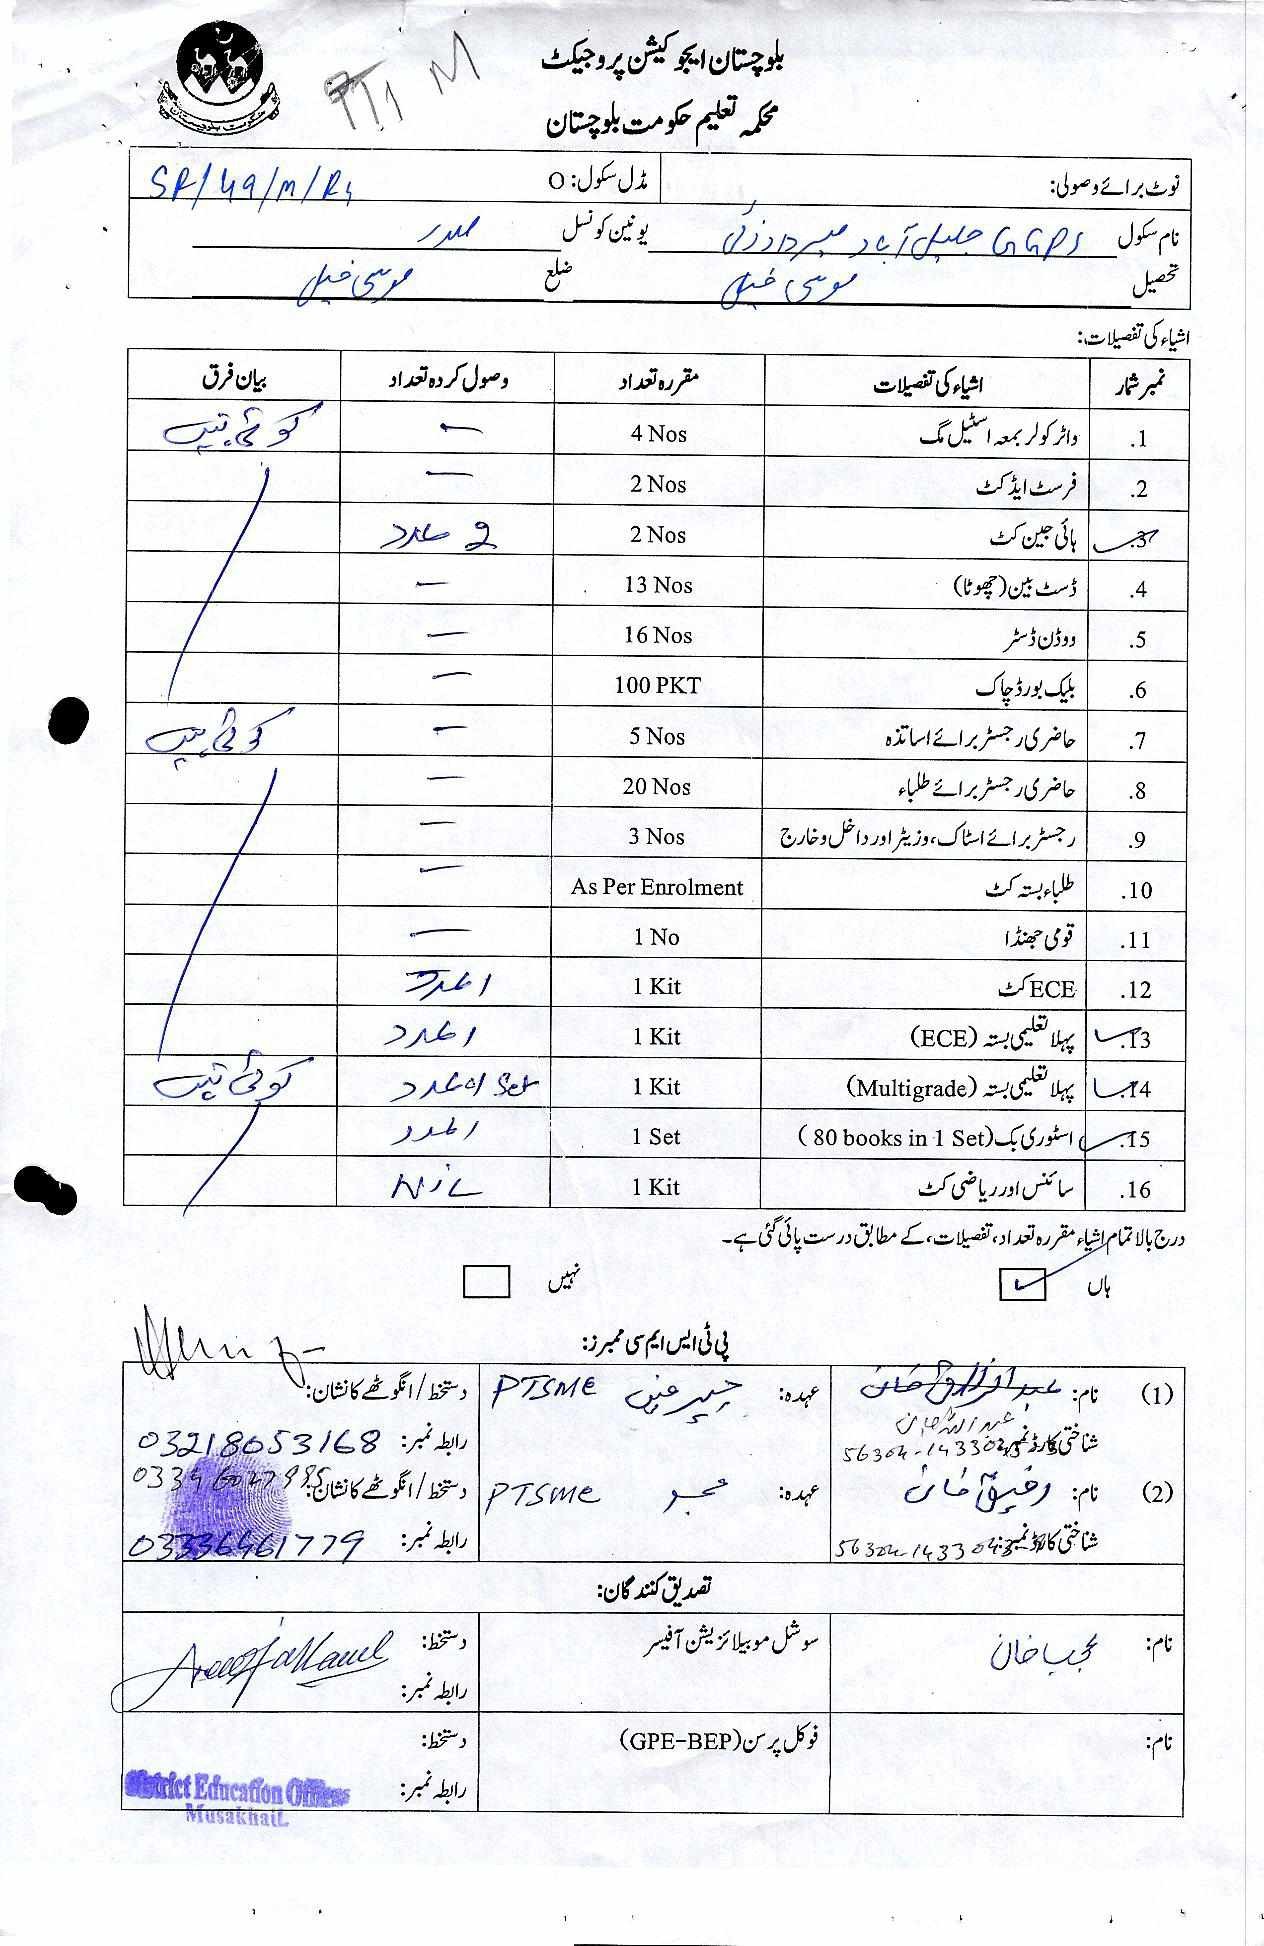 حکومت بلوچستان
PT1 M
بلوچستان ایجوکیشن پروجیکٹ
محکمہ تعلیم حکومت بلوچستان
نوٹ برائے وصولی: مڈل سکول: O SR/49/M/R4
نام سکول GGPS جلیل آباد یونین کونسل صدر
تحصیل موسیٰ خیل ضلع موسیٰ خیل
اشیاء کی تفصیلات:
نمبر شمار اشیاء کی تفصیلات مقررہ تعداد وصول کردہ تعداد بیان فرق
.1 واٹر کولر بمعہ اسٹیل مگ 4 Nos — کوئی نہیں
.2 فرسٹ ایڈ کٹ 2 Nos —
.3 ہائی جین کٹ 2 Nos 2 عدد
.4 ڈسٹ بین (چھوٹا) 13 Nos —
.5 ووڈن ڈسٹر 16 Nos —
.6 بلیک بورڈ چاک 100 PKT —
.7 حاضری رجسٹر برائے اساتذہ 5 Nos — کوئی نہیں
.8 حاضری رجسٹر برائے طلباء 20 Nos —
.9 رجسٹر برائے اسٹاک، وزیٹر اور داخل و خارج 3 Nos —
.10 طلباء بستہ کٹ As Per Enrolment —
.11 قومی جھنڈا 1 No —
.12 ECE کٹ 1 Kit 1 عدد
.13 پہلا تعلیمی بستہ (ECE) 1 Kit 1 عدد
.14 پہلا تعلیمی بستہ (Multigrade) 1 Kit 1 عدد Set کوئی نہیں
.15 اسٹوری بک (80 books in 1 Set) 1 Set 1 عدد
.16 سائنس اور ریاضی کٹ 1 Kit NIL
درج بالا تمام اشیاء مقررہ تعداد، تفصیلات، کے مطابق درست پائی گئی ہے۔
ہاں ✓ نہیں
پی ٹی ایس ایم سی ممبرز:
(1) نام: عبدالرزاق خان عہدہ: چیئرمین PTSMC دستخط/انگوٹھے کا نشان:
عبداللہ جان
شناختی کارڈ نمبر: رابطہ نمبر: 03218053168
(2) نام: رفیق خان عہدہ: ممبر PTSMC دستخط/انگوٹھے کا نشان:
شناختی کارڈ نمبر: رابطہ نمبر: 03336461779
تصدیق کنندگان:
نام: مجیب خان سوشل موبیلائزیشن آفیسر دستخط:
رابطہ نمبر:
نام: فوکل پرسن (GPE-BEP) دستخط:
رابطہ نمبر:
District Education Officer
Musakhail.